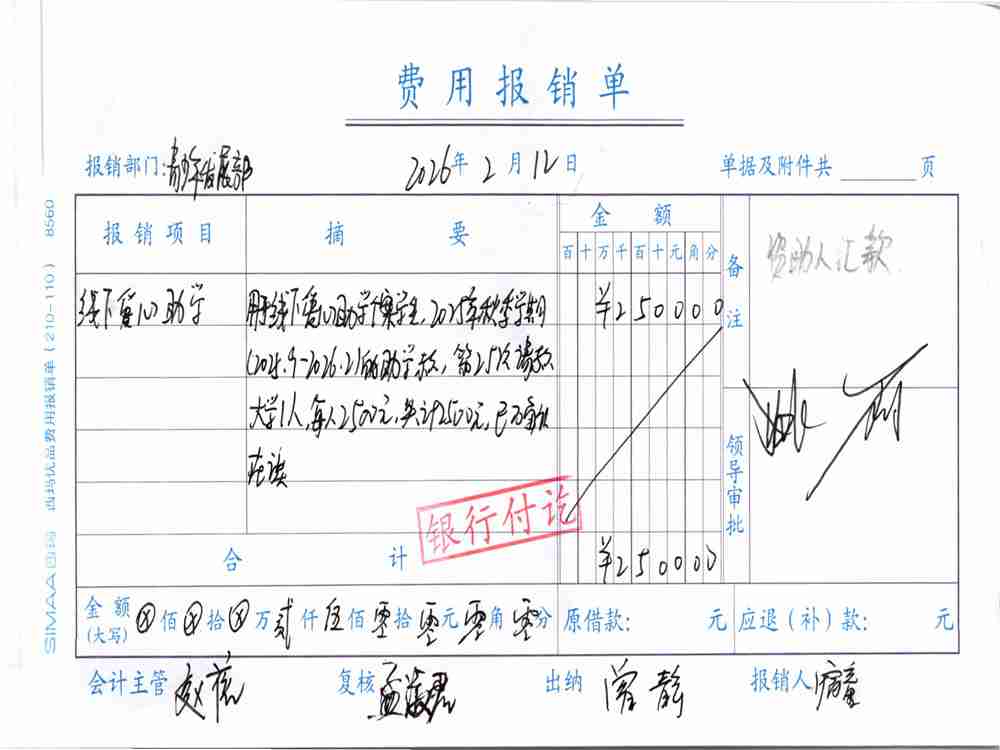 费用报销单
报销部门:青少年发展部 2026年2月12日 单据及附件共 页
报销项目 摘要 金额 备注 资助人汇款
百十万千百十元角分
线下爱心助学 用于线下爱心助学 学生,2025年秋季学期 ¥250000
(2025.9-2026.2)的助学款,第25次请款
大学1人,每人2500元,共计2500元,已确认
在读
领导审批
银行付讫
合计 ¥250000
金额(大写) ⊗佰⊗拾⊗万贰仟伍佰零拾零元零角零分 原借款: 元 应退(补)款: 元
会计主管 赵 复核 孟 出纳 曾静 报销人
SIMAA西玛 西玛优品费用报销单(210-110) 8560